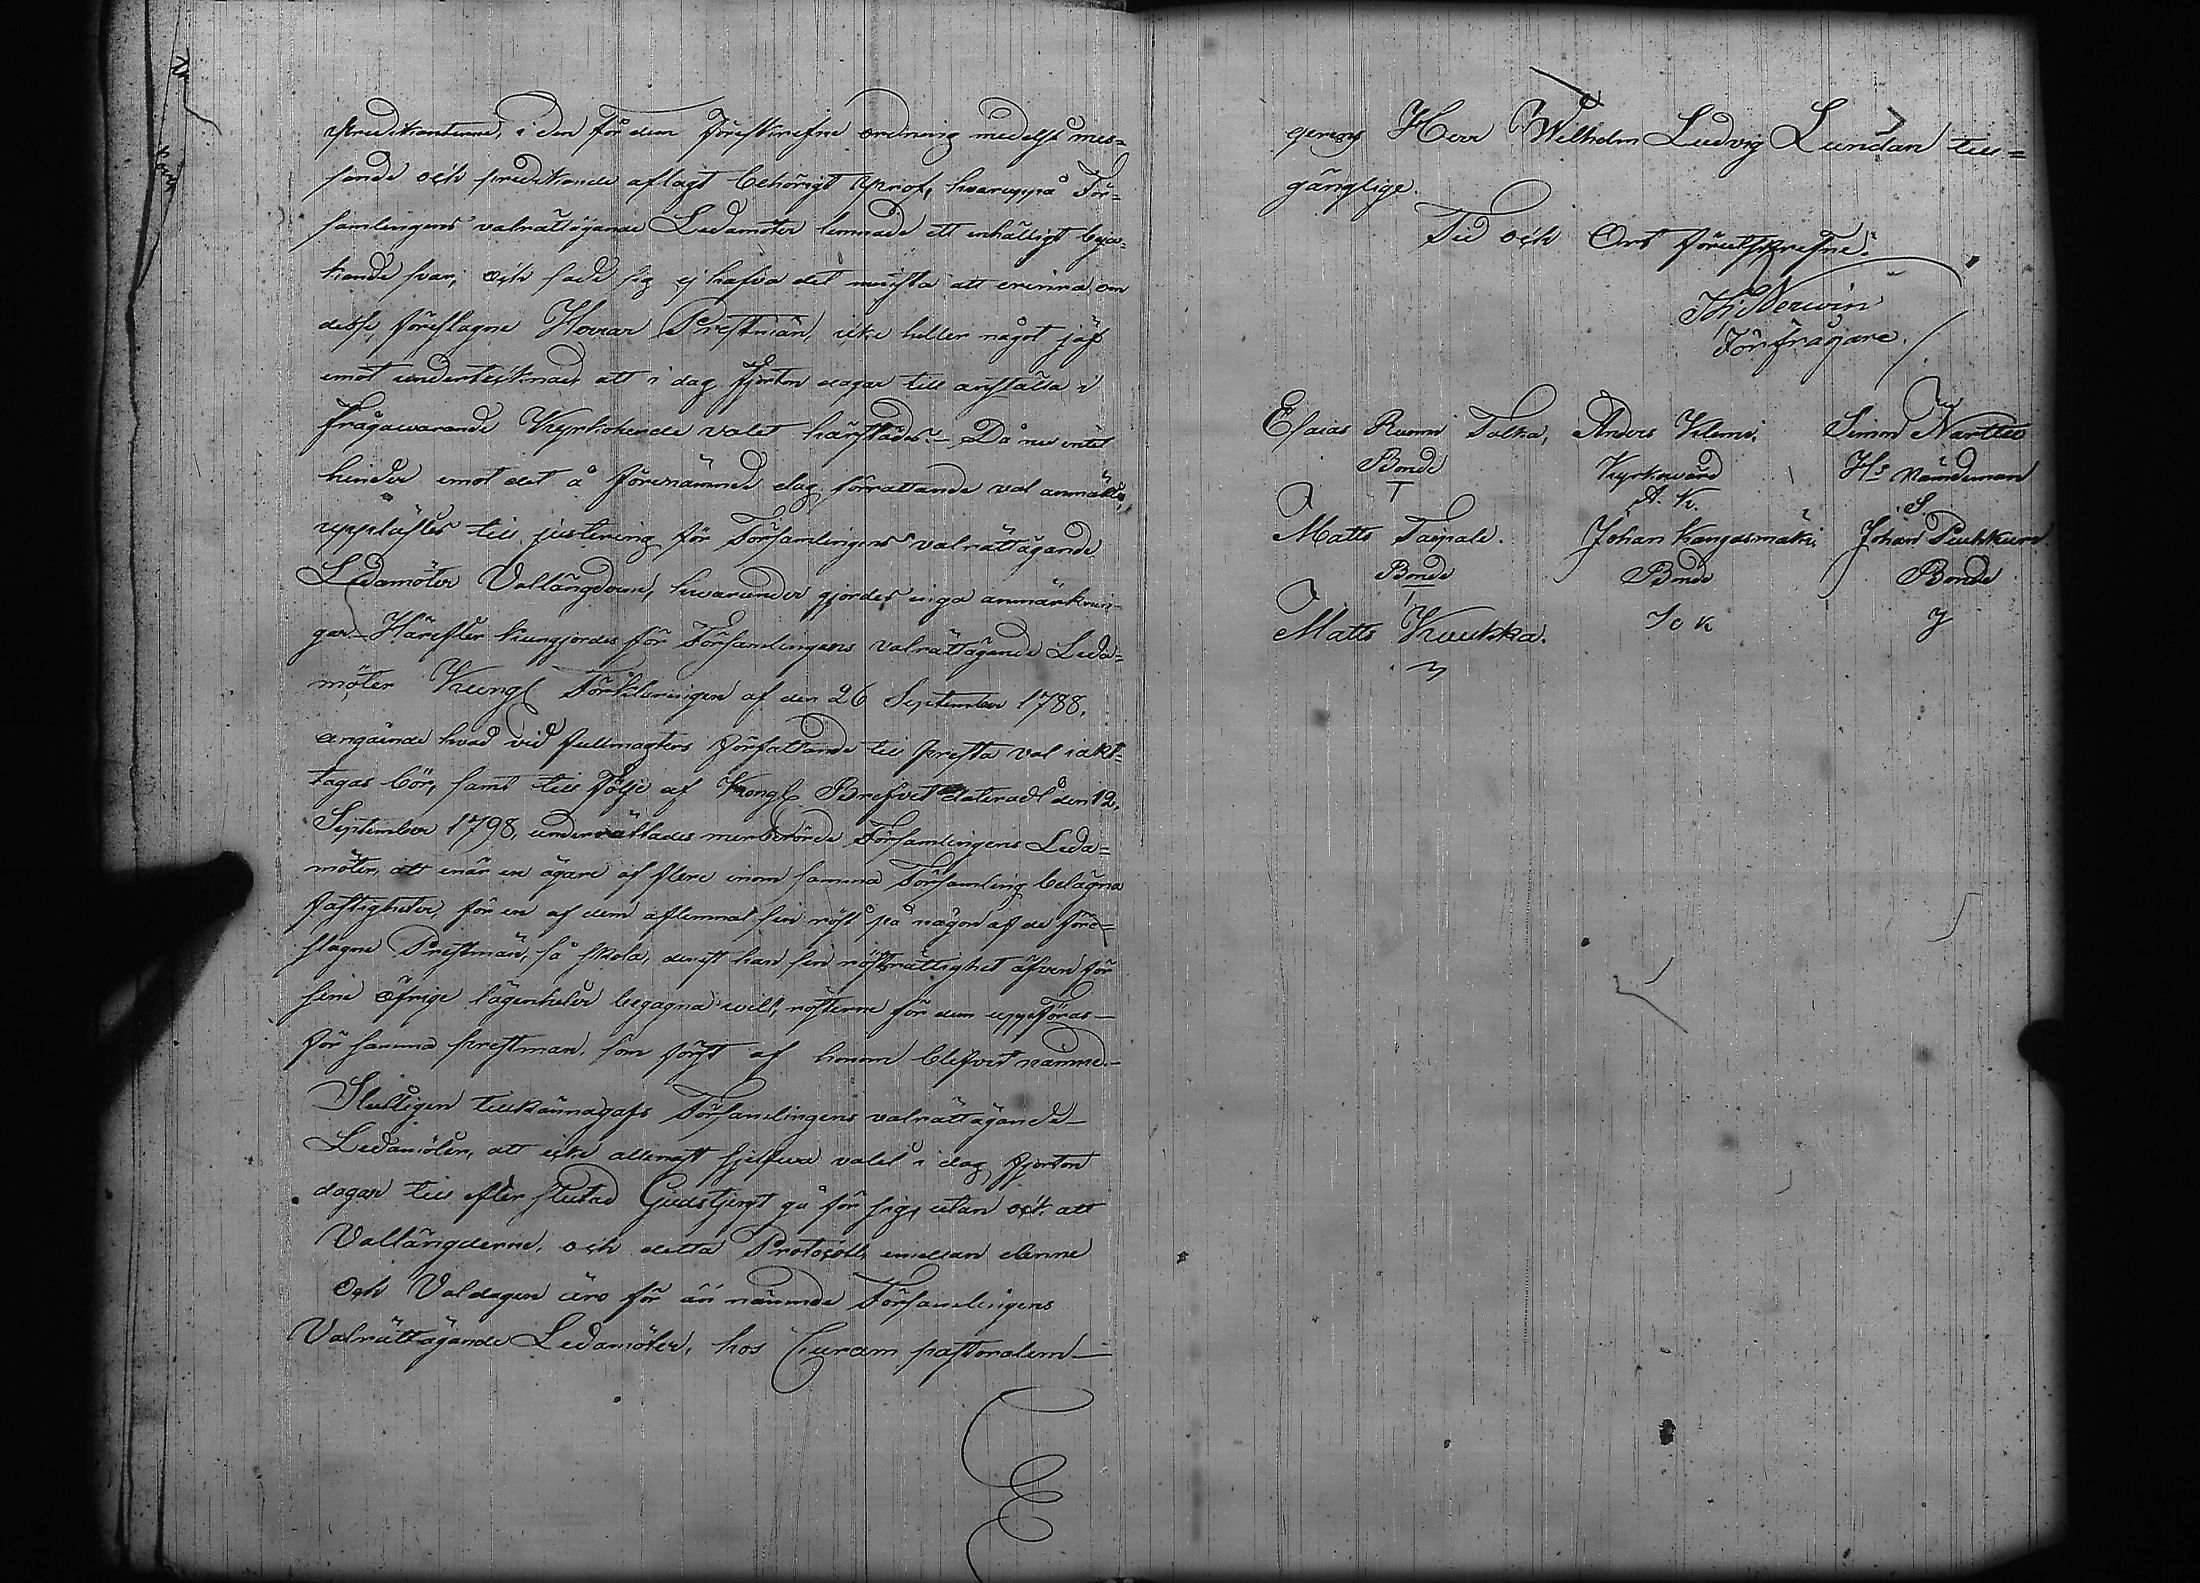 predikanterne, i den för dem föreskrefne ordning medelst mes=
sande och predikande aflagt behörigt prof, hvaruppå För=
samlingens valrättägande Ledamöter lemnade ett enhälligt beja=
kande svar, och sade sig ej hafva det minsta att erinra om
desse föreslagne Herrar Prestmän, icke heller något jäf
emot undertecknad att i dag fjorton dagar till anställa i
frågawarande Kyrkoherde valet härstädes.- Då nu intet
hinder emot det å förenämnde dag förrättande val anmältes,
upplästes till justering för Församlingens valrättägande
Ledamöter Vallängderne, hvarunder gjordes inga anmärknin=
gar.- Härefter kungjordes för Församlingens valrättägande Leda=
möter Kungl Förklaringen af den 26 September 1788,
angående hvad vid fullmagters författande till presta val iakt=
tagas bör, samt till följe af Kongl. Brefvet dateradt den 12,
September 1798, underrättades merberörde Församlingens Leda=
möter, att enär en ägare af flere inom samma Församling belägna
fastigheter, för en af dem aflemnat sin röst på någon af de före=
slagne Prestmän, så skola, derest han sin röstträttighet äfven för
sine öfrige lägenheter begagna will, rösterne för dem uppföras
för samma prestman, som först af honom blifvit nämnd.-
Slutligen tillkännagafs Församlingens valrättägande
Ledamöter, att icke allenast sjelfwa valet i dag fjorton
dagar till efter slutad Gudstjenst gå för sig, utan ock att
Vallängderne, och detta Protocoll, emellan denne
och Valdagen äro för än nämnde Församlingens
Valrättägande Ledamöter, hos Curam pastoralem
gerens Herr Wilhelm Ludvig Lundan till=
gänglige.
Tid och Ort förutskrefne.
Nerwin
Förefrågare.
Esaias Ruomi Talka, Anders Klemi, Simon Narttu
Bonde Kyrkoward Hs Nämndeman
T A. K. S
Matts Taipale. Johan Kangasmäki, Johan Puukkuri
Bonde Bonde Bonde
T J o K J
Matts Kuukka.